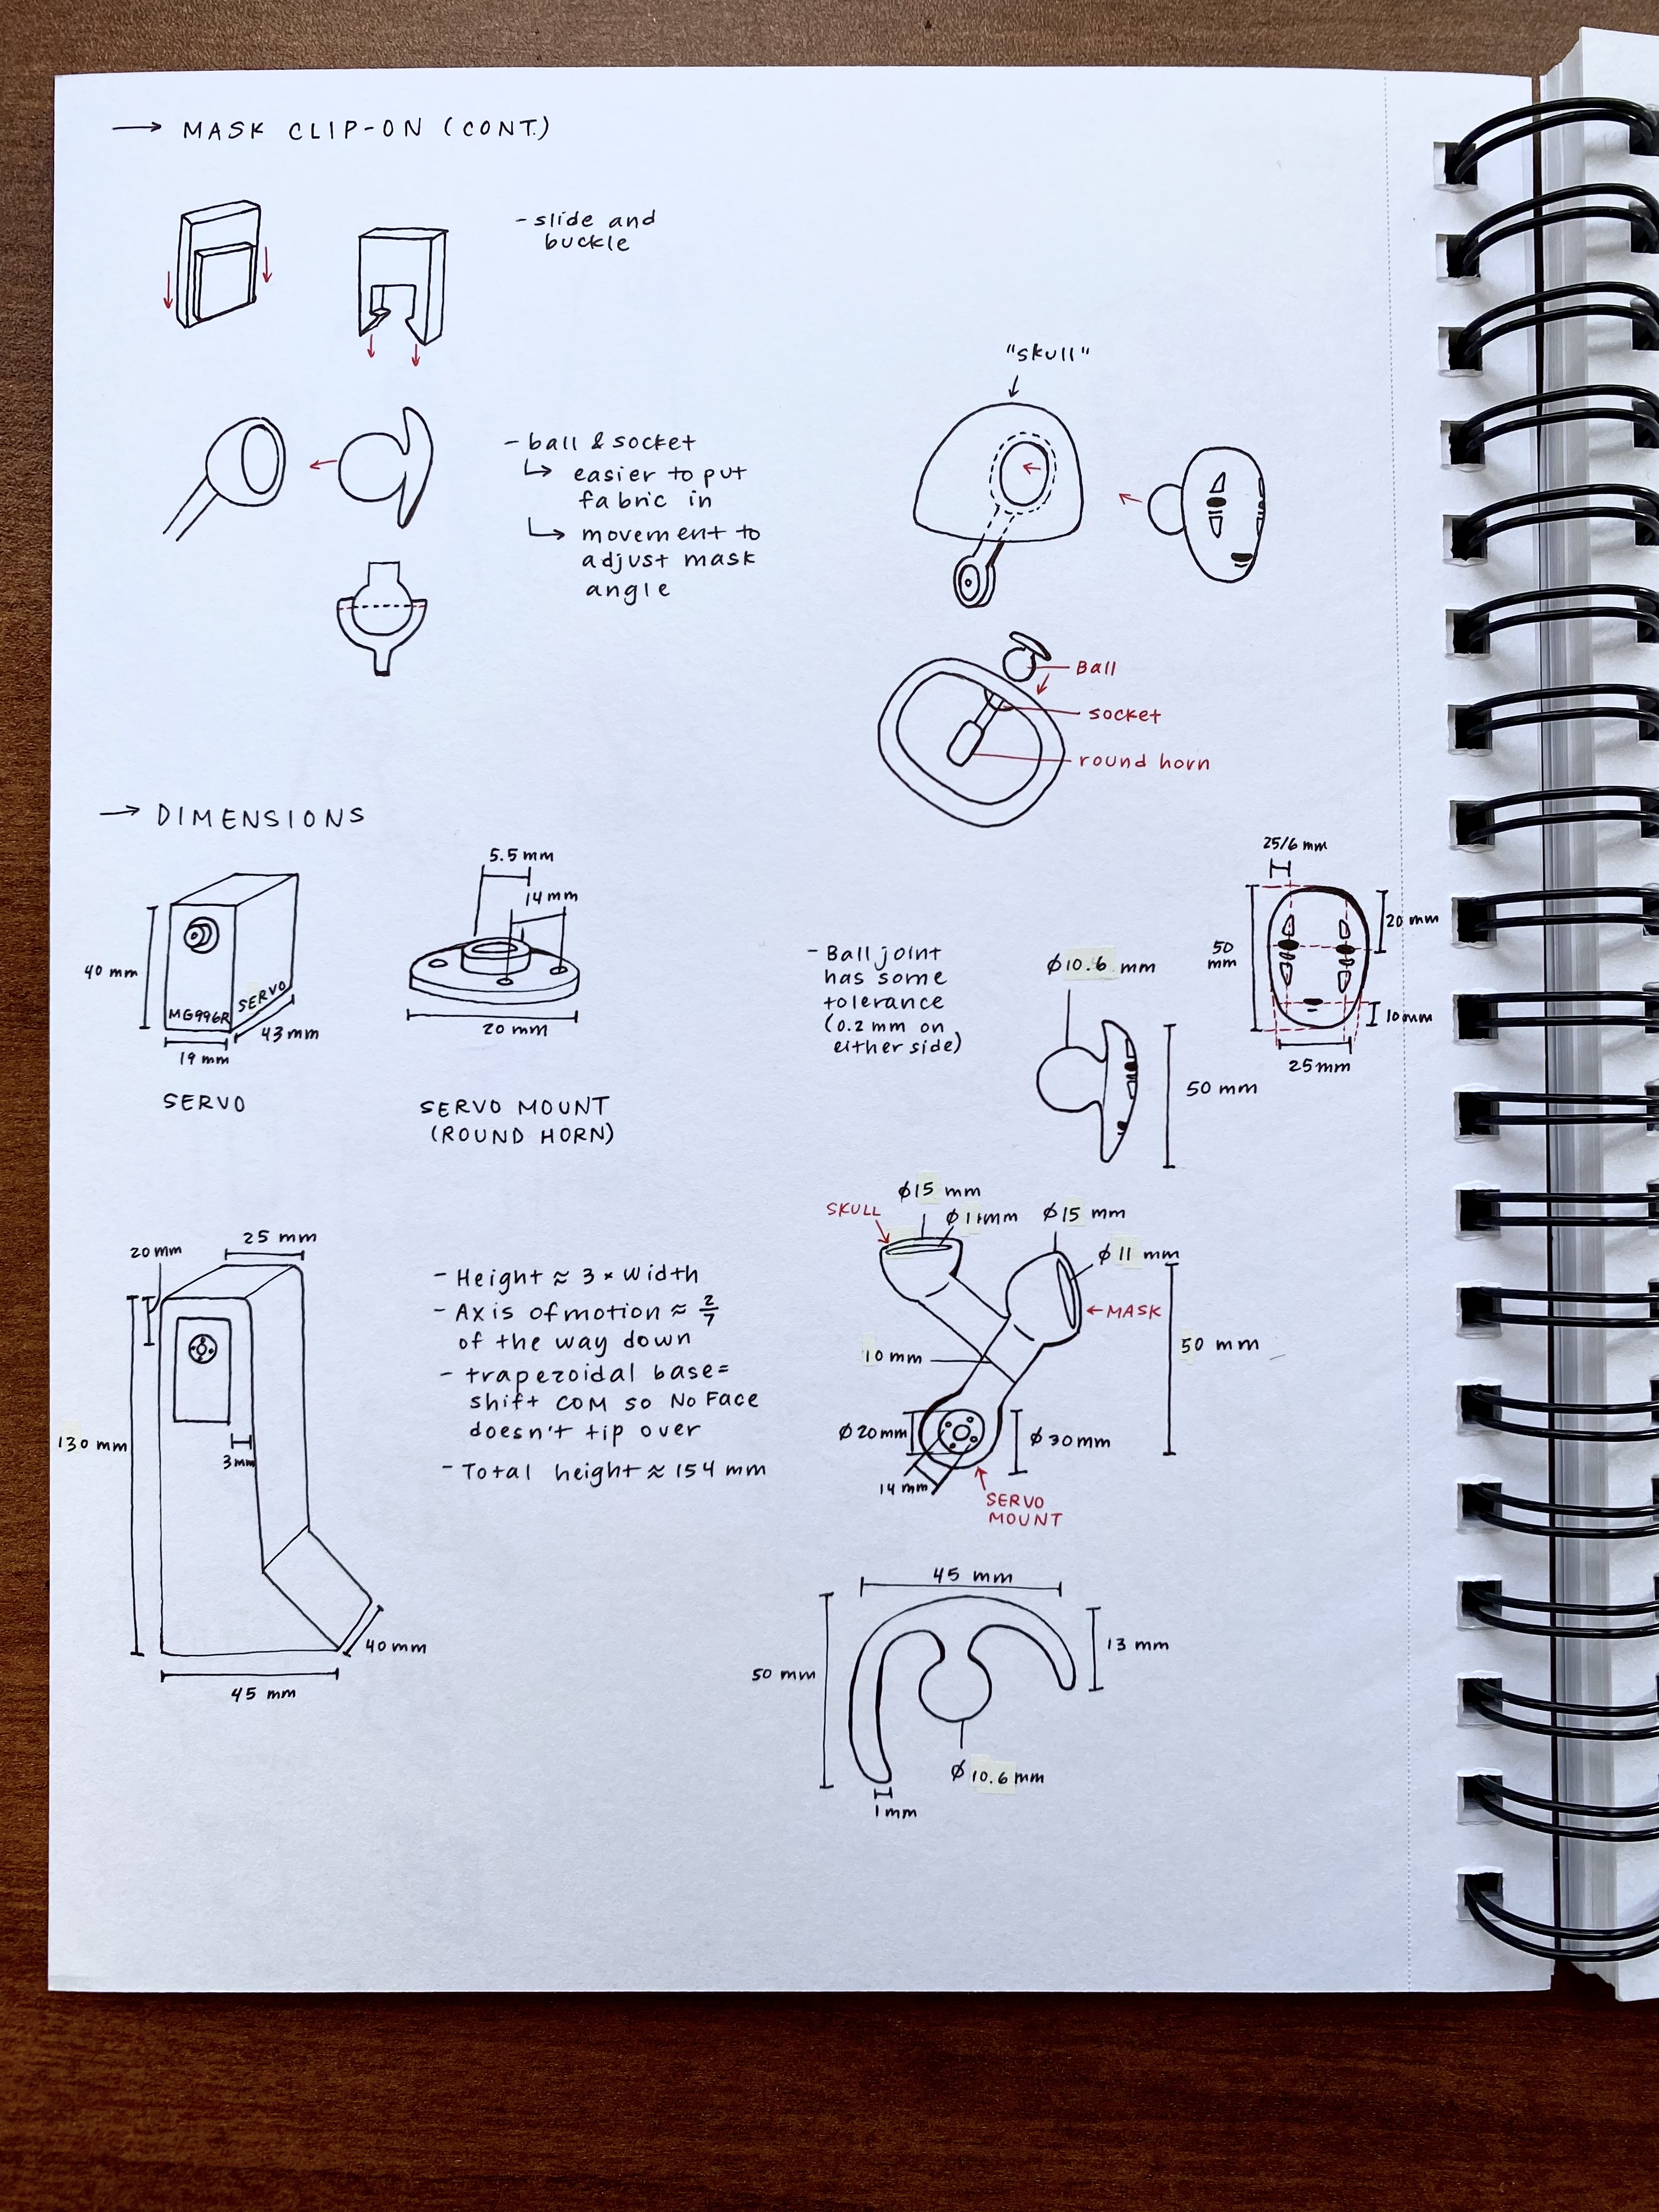 → MASK CLIP-ON (CONT.)
- slide and
buckle
- ball & socket
↳ easier to put
fabric in
↳ movement to
adjust mask
angle
"skull"
Ball
socket
round horn
→ DIMENSIONS
40 mm
MG996R
SERVO
43 mm
19 mm
SERVO
5.5 mm
14 mm
20 mm
SERVO MOUNT
(ROUND HORN)
- Ball joint
has some
tolerance
(0.2 mm on
either side)
Ø10.6 mm
50 mm
25/6 mm
50
mm
20 mm
10 mm
25 mm
20 mm
25 mm
130 mm
3mm
40 mm
45 mm
- Height ≈ 3 × width
- Axis of motion ≈ 2/7
of the way down
- trapezoidal base =
shift COM so No Face
doesn't tip over
- Total height ≈ 154 mm
SKULL
Ø15 mm
Ø11mm
Ø15 mm
Ø11 mm
← MASK
50 mm
10 mm
Ø20mm
Ø30mm
14 mm
SERVO
MOUNT
45 mm
50 mm
13 mm
Ø10.6 mm
1mm